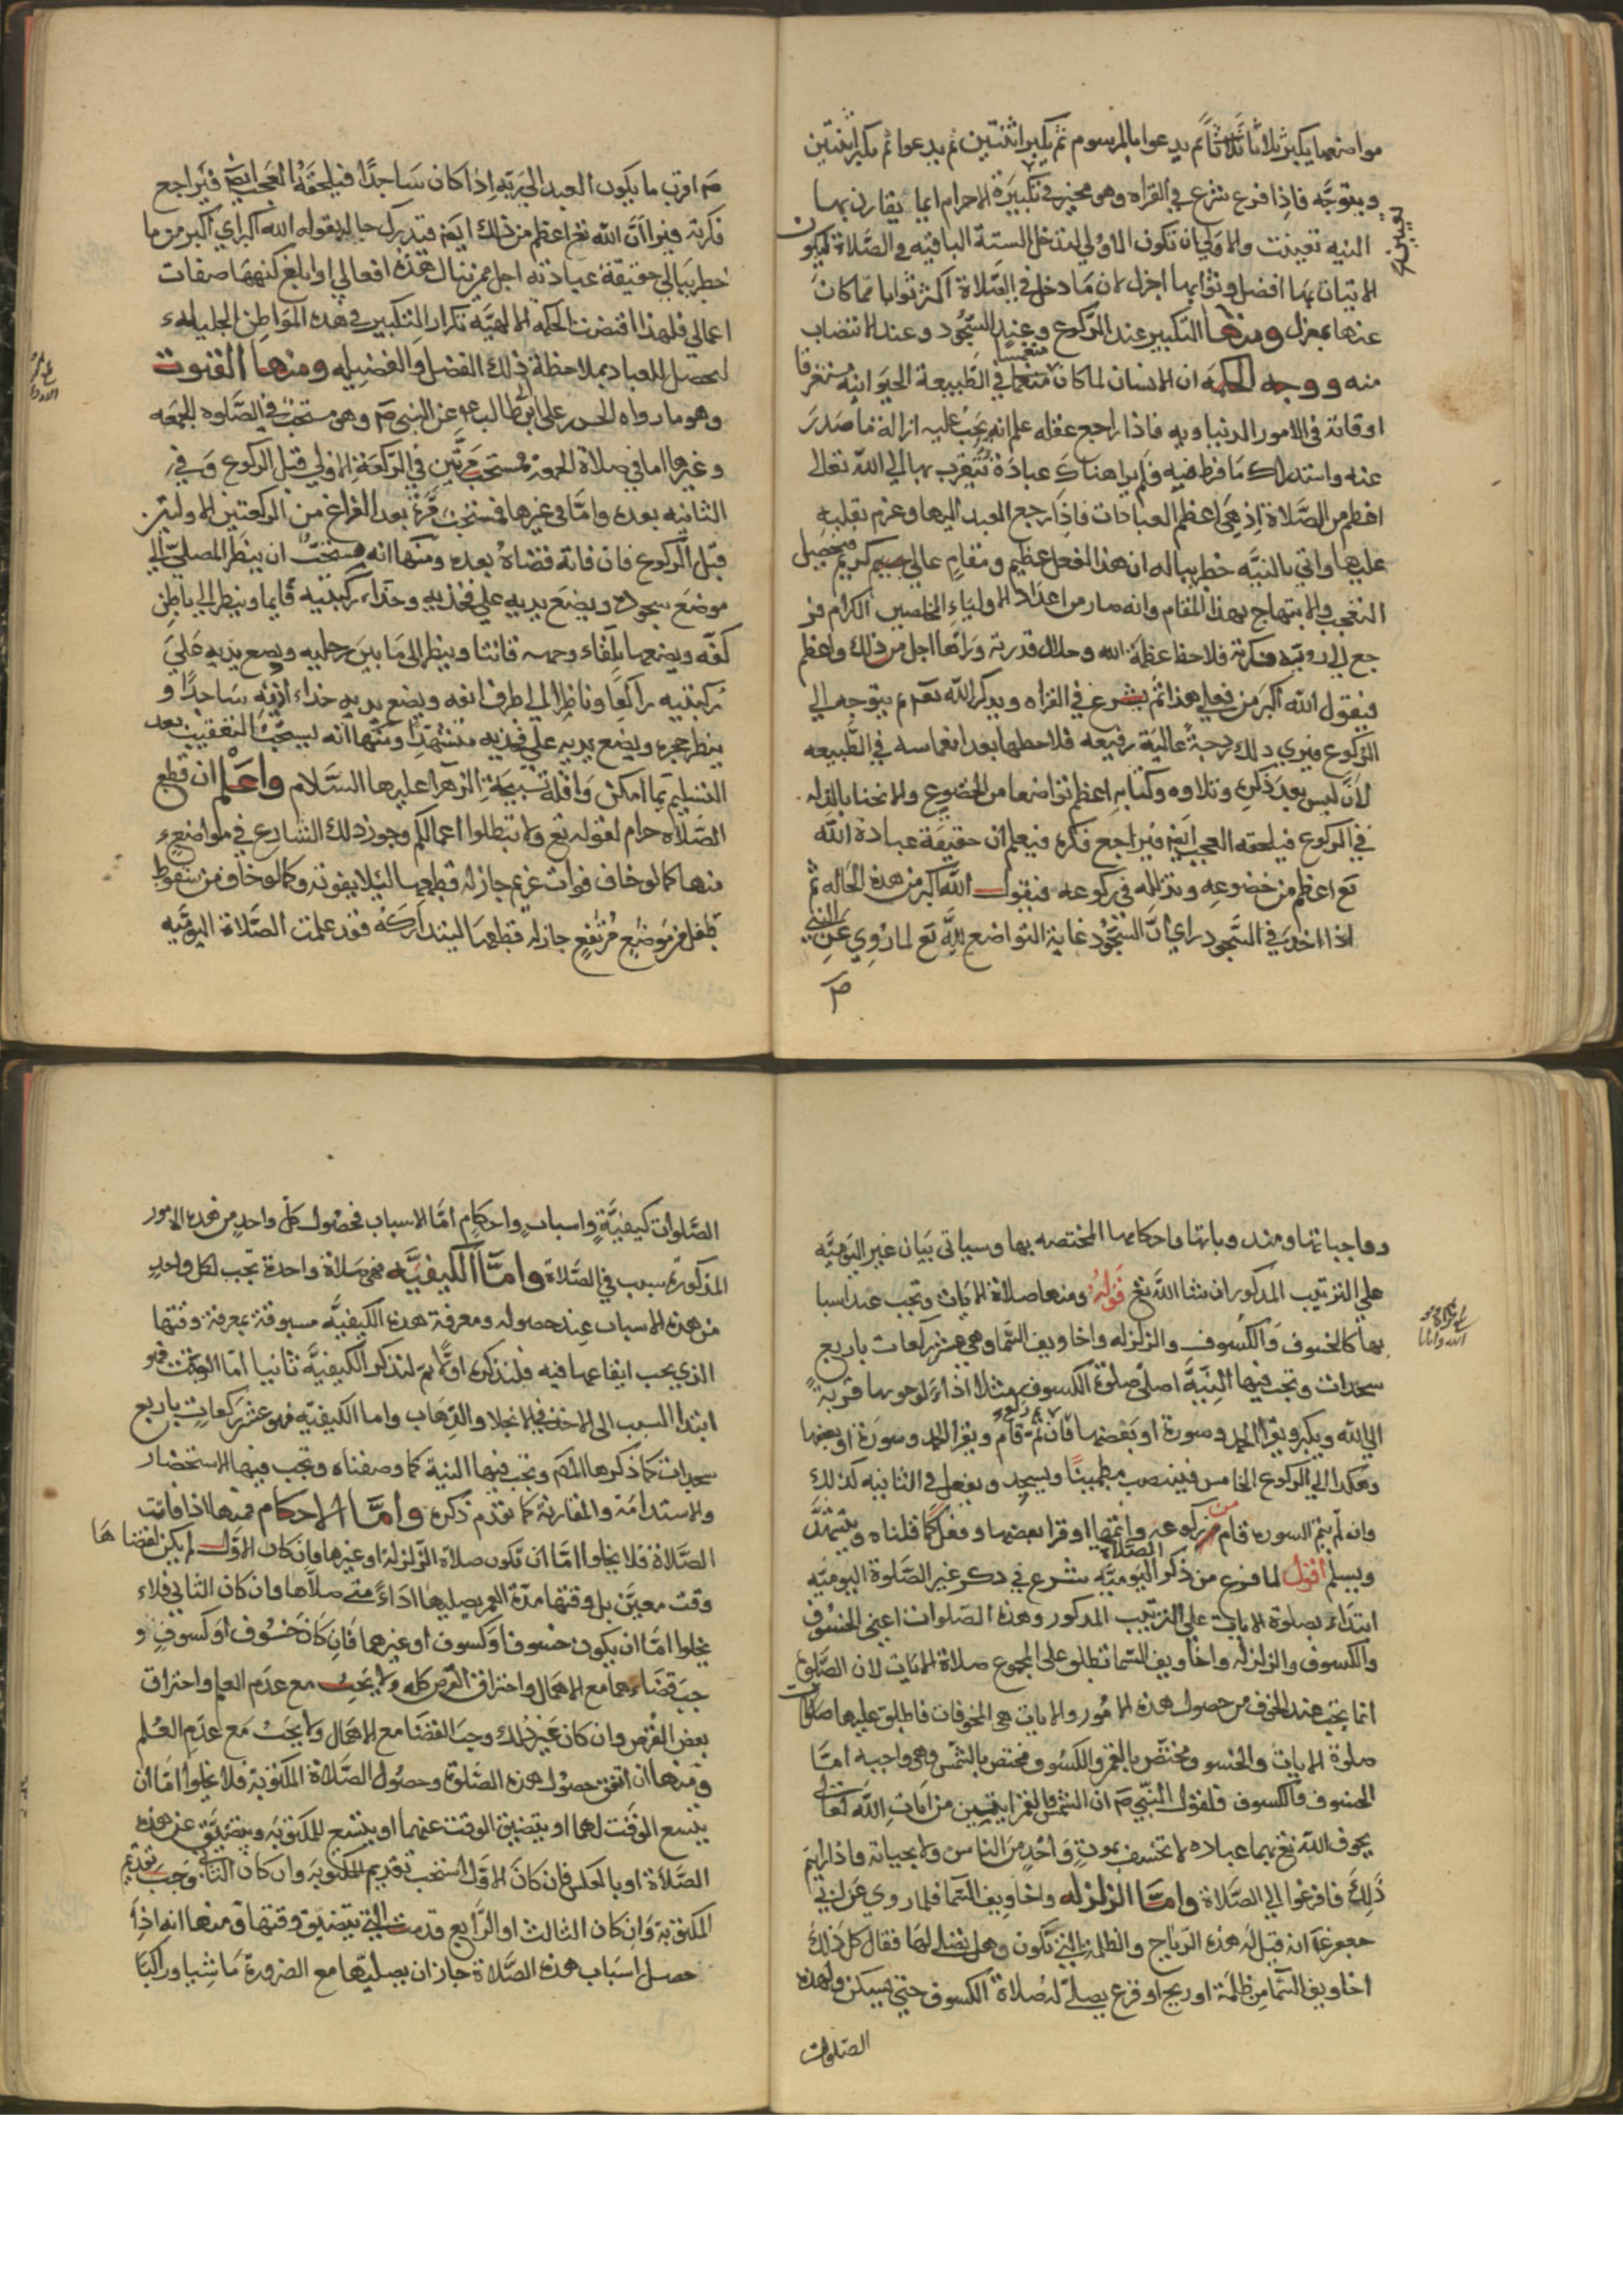 مواضعها يكبر ثلاثا ثلاثا ثم يدعوا بالمرسوم ثم يكبر اثنتين ثم يدعوا ثم يكبر اثنتين
ويتوجه فاذا فرغ شرع في القراه وهو مخير في تكبيرة الاحرام ايما يقارن بها
النيه تعينت والاولي ان تكون الاولي لتدخل الستة الباقيه في الصلاة ليكون
الاتيان بها افضل وثوابها اجزل لان ما دخل في الصلاة اكثر ثوابا مما كان
عنها بمعزل ومنها التكبير عند الركوع وعند السجود وعند الانتصاب
منه ووجه الحكمه ان الانسان لما كان منغمسا في الطبيعة الحيوانيه مستغرقا
اوقاته في الامور الدنياويه فاذا راجع عقله علم انه يجب عليه ازالة ما صدر
عنه واستدراك ما فرط فيه ولم ير هناك عبادة يتقرب بها الي الله تعالى
اعظم من الصلاة اذ هي اعظم العبادات فاذا رجع العبد اليها وعزم بقلبه
عليها واتي بالنيه خطر بباله ان هذا الفعل عظيم ومقام عالي كريم فيحصل
التعجب والابتهاج بهذا المقام وانه صار من اعداد الاولياء الخاصين الكرام فر
جع الي رويه فكرته فلاحظ عظمة الله وجلال قدرته وراها اجل من ذلك واعظم
فيقول الله اكبر من فعلي هذا ثم يشرع في القراه ويذكر الله تعم ثم يتوجه الي
الركوع فيري ذلك درجة عالية رفيعه فلاحظها بعد انغماسه في الطبيعه
لان ليس بعد ذكره وتلاوه وكتابه اعظم تواضعا من الخضوع والانحنا بالذله
في الركوع فيلحقه العجب ايضا فيراجع فكره فيعلم ان حقيقة عبادة الله
تع اعظم من خضوعه وتذلله في ركوعه فيقول الله اكبر من هذه الحاله ثم
اذا اخذ في السجود راي ان السجود غاية التواضع لله تع لما روي عن النبي
ص
ص اقرب ما يكون العبد الي ربه اذا كان ساجدا فيلحقه العجب ايضا فيراجع
فكرته فيرا ان الله تع اعظم من ذلك ايضا فيتدرك حاله بقوله الله اكبر اي اكبر من ما
خطر ببالي حقيقة عبادته اجل ممن تنال هذه افعالي او ابلغ كنهها صفات
اعمالي فلهذا اقتضت الحكمه الالهيه تكرار التكبير في هذه المواطن الجليله
ليحصل للعباد بملاحظة ذلك الفضل والفضيله ومنها القنوت
وهو ما رواه الحسن علي ابن ابي طالب ع عن النبي ص وهو مستحب في الصلوه الجمعه
وغيرها اما في صلاة الجمعه فمستحب مرتين في الركعة الاولي قبل الركوع وفي
الثانيه بعده واما في غيرها فمستحب مرة بعد الفراغ من الركعتين الاوليتين
قبل الركوع فان فاته قضاه بعده ومنها انه يستحب ان ينظر المصلي الي
موضع سجوده ويضع يديه علي فخذيه وحذاء ركبتيه قايما وينظر الي باطن
كفه ويضعها تلقاء وجهه قانتا وينظر الى ما بين رجليه ويضع يديه علي
ركبتيه راكعا وناظرا الي طرف انفه ويضع يديه حذاء اذنيه ساجدا و
ينظر حجره ويضع يديه علي فخذيه متشهدا ومنها انه يستحب التعقيب بعد
التسليم بما امكن واقله تسبيحة الزهرا عليها السلام واعلم ان قطع
الصلاه حرام لقوله تع ولا تبطلوا اعمالكم وجوز ذلك الشارع في مواضع
منها كما لو خاف فوات غريم جاز له قطعها ليلا يفوته وكما لو خاف من سقوط
طفل من موضع مرتفع جاز له قطعها ليتداركه فقد علمت الصلاة اليوميه
وواجباتها ومندوباتها واحكامها المختصه بها وسياتي بيان غير اليوميه
علي الترتيب المذكور ان شا الله تع قوله ومنها صلاة الايات وتجب عند اسبا
بها كالخسوف والكسوف والزلزله واخاويف السما وهي عشر ركعات باربع
سجدات وتجب فيها النية اصلي صلوة الكسوف مثلا اداء لوجوبها قربة
الي الله ويكبر ويقرا الحمد وسورة او بعضها فان ثم قام ويقرا الحمد وسورة او بعضها
وهكذا الي الركوع الخامس فينتصب مطمينا ويسجد ويفعل في الثانيه كذلك
وان لم يتم السوره قام من ركوعه واتمها او قرا بعضها وفعل كما قلناه ويتشهد
ويسلم اقول لما فرغ من ذكر الصلاة اليوميه شرع في ذكر غير الصلوة اليوميه
ابتداء بصلوة الايات علي الترتيب المذكور وهذه الصلوات اعني الخسوف
والكسوف والزلزله واخاويف السما تطلق على المجموع صلاة الايات لان الصلوة
انما تجب عند الخوف من حصول هذه الامور والايات هي المخوفات فاطلق عليها
صلوة الايات والخسوف مختص بالقمر والكسوف مختص بالشمس وهي واجبه اما
الخسوف والكسوف فلقول النبي ص ان الشمس والقمر ايتين من ايات الله تعالى
يخوف الله تع بهما عباده لا تخسف بموت واحد من الناس ولا بحياته فاذا رايتم
ذلك فافزعوا الي الصلاة واما الزلزله واخاويف السما فلما روي عن ابي
جعفر ع انه قيل له هذه الرياح والظلم التي تكون وهل نصلي لها فقال كل ذلك
اخاويف السما من ظلمة او ريح او فزع يصلي له صلاة الكسوف حتي يسكن ولهذه
الصلوات
الصلوات كيفية واسباب واحكام اما الاسباب فحصول كل واحد من هذه الامور
المذكورة سبب في الصلاة واما الكيفيه فهي صلاة واحدة تجب لكل واحد
من هذه الاسباب عند حصوله ومعرفة هذه الكيفيه مسبوقة بمعرفة وقتها
الذي يجب ايقاعها فيه فلنذكره اولا ثم لنذكر الكيفيه ثانيا اما الوقت فهو
ابتدا السبب الى الاخذ في الانجلا والذهاب واما الكيفيه فهو عشر ركعات باربع
سجدات كما ذكرها المص وتجب فيها النية كما وصفناه وتجب فيها الاستحضار
والاستدامة والمقارنة كما تقدم ذكره واما الاحكام فمنها اذا فاتت
الصلاة فلا يخلوا اما ان تكون صلاة الزلزلة او غيرها فان كان الاول لم يكن لقضاها
وقت معين بل وقتها مدة العمر يصليها اداء متي صلاها وان كان الثاني فلا
يخلوا اما ان يكون خسوف او كسوف او غيرهما فان كان خسوف او كسوف و
جب قضاءهما مع الاهمال واحتراق القرص كله ولا يجب مع عدم العلم واحتراق
بعض القرص وان كان غير ذلك وجب القضا مع الاهمال ولا يجب مع عدم العلم
ومنها ان اتفق حصول هذه الصلوة وحصول الصلاة المكتوبة فلا يخلوا اما ان
يتسع الوقت لهما او يتضيق الوقت عنهما او يتسع للمكتوبه ويتضيق عن هذه
الصلاة او بالعكس فان كان الاول استحب تقديم المكتوبة وان كان الثاني وجب تقديم
المكتوبة وان كان الثالث او الرابع قدمت التي تتضيق وقتها ومنها انه اذا
حصل اسباب هذه الصلاة جاز ان يصليها مع الضرورة ماشيا وراكبا